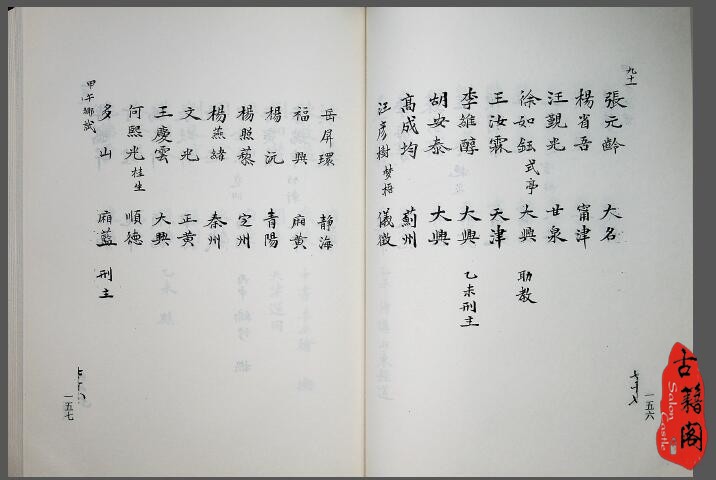 九十一
張元齡 大名
楊省吾 甯津
汪覲光 甘泉
徐如鈺 式亭 大興 助教
王汝霖 天津
李維醇 大興 乙未刑主
胡安泰 大興
高成均 薊州
汪彥樹 梦梧 儀徵
七十七
一五六
岳屏環 静海
福興 廂黄
楊沅 青陽
楊照藜 定州
楊燕緒 秦州
文光 正黄
王慶雲 大興
何熙光 桂生 順德
多山 廂藍 刑主
甲午鄉試
七十八
一五七
古籍阁
Salon Castle